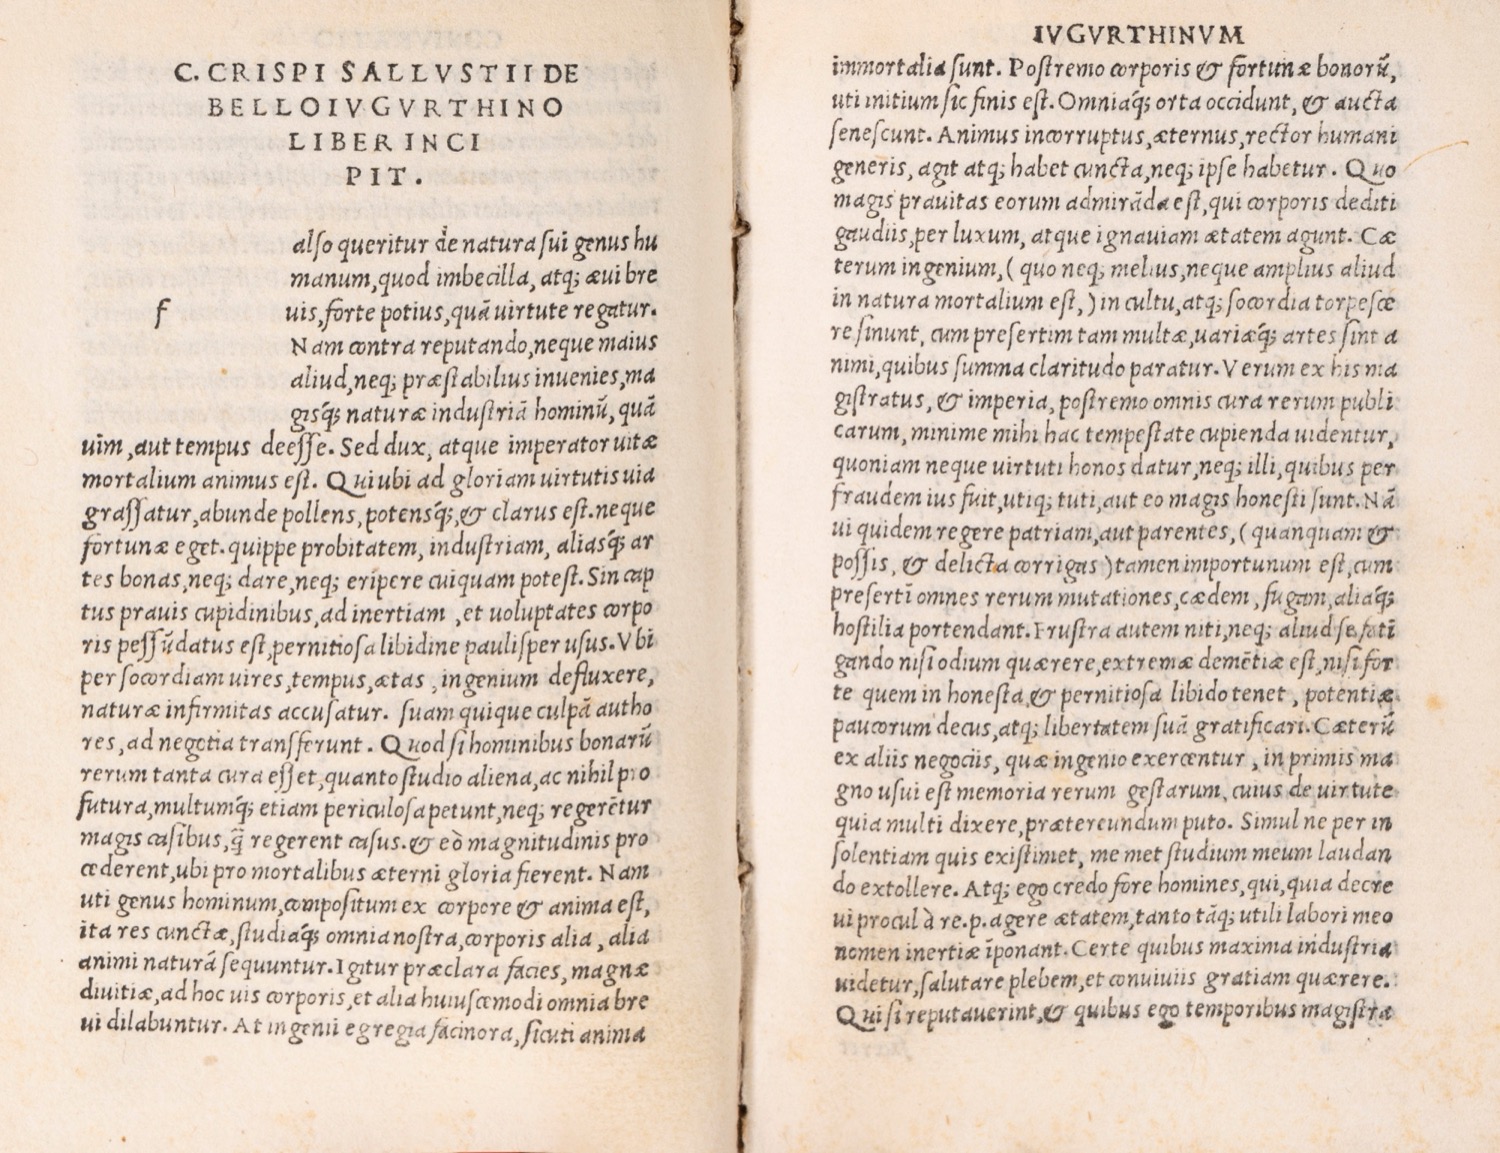 C. CRISPI SALLVSTII DE
BELLO IVGVRTHINO
LIBER INCI
PIT.
f
also queritur de natura sui genus hu
manum, quod imbecilla, atq; æui bre
uis, forte potius, quã uirtute regatur.
Nam contra reputando, neque maius
aliud, neq; præstabilius inuenies, ma
gisq́; naturæ industriã hominũ, quã
uim, aut tempus deesse. Sed dux, atque imperator uitæ
mortalium animus est. Qui ubi ad gloriam uirtutis uia
grassatur, abunde pollens, potensq́;, & clarus est. neque
fortunæ eget. quippe probitatem, industriam, aliasq́; ar
tes bonas, neq; dare, neq; eripere cuiquam potest. Sin cap
tus prauis cupidinibus, ad inertiam, et uoluptates corpo
ris pessũdatus est, pernitiosa libidine paulisper usus. Vbi
per socordiam uires, tempus, ætas, ingenium defluxere,
naturæ infirmitas accusatur. suam quique culpã autho
res, ad negotia transferunt. Quod si hominibus bonarũ
rerum tanta cura esset, quanto studio aliena, ac nihil pro
futura, multumq́; etiam periculosa petunt, neq; regerẽtur
magis casibus, q̃ regerent casus. & eò magnitudinis pro
cederent, ubi pro mortalibus æterni gloria fierent. Nam
uti genus hominum, compositum ex corpore & anima est,
ita res cunctæ, studiaq́; omnia nostra, corporis alia, alia
animi naturã sequuntur. Igitur præclara facies, magnæ
diuitiæ, ad hoc uis corporis, et alia huiuscemodi omnia bre
ui dilabuntur. At ingenii egregia facinora, sicuti anima
IVGVRTHINVM
immortalia sunt. Postremo corporis & fortunæ bonorũ,
uti initium sic finis est. Omniaq́; orta occidunt, & aucta
senescunt. Animus incorruptus, æternus, rector humani
generis, agit atq; habet cuncta, neq; ipse habetur. Quo
magis prauitas eorum admirãda est, qui corporis dediti
gaudiis, per luxum, atque ignauiam ætatem agunt. Cæ
terum ingenium, ( quo neq; melius, neque amplius aliud
in natura mortalium est, ) in cultu, atq; socordia torpesce
re sinunt, cum presertim tam multæ, uariæq́; artes sint a
nimi, quibus summa claritudo paratur. Verum ex his ma
gistratus, & imperia, postremo omnis cura rerum publi
carum, minime mihi hac tempestate cupienda uidentur,
quoniam neque uirtuti honos datur, neq; illi, quibus per
fraudem ius fuit, utiq; tuti, aut eo magis honesti sunt. Nã
ui quidem regere patriam, aut parentes, ( quanquam &
possis, & delicta corrigas ) tamen importunum est, cum
presertĩ omnes rerum mutationes, cædem, fugam, aliaq́;
hostilia portendant. Frustra autem niti, neq; aliud se fati
gando nisi odium quærere, extremæ demẽtiæ est, nisi for
te quem in honesta & pernitiosa libido tenet, potentiæ
paucorum decus, atq; libertatem suã gratificari. Cæterũ
ex aliis negociis, quæ ingenio exercentur, in primis ma
gno usui est memoria rerum gestarum, cuius de uirtute
quia multi dixere, prætereundum puto. Simul ne per in
solentiam quis existimet, me met studium meum laudan
do extollere. Atq; ego credo fore homines, qui, quia decre
ui procul à re.p. agere ætatem, tanto tãq; utili labori meo
nomen inertiæ ĩponant. Certe quibus maxima industria
uidetur, salutare plebem, et conuiuiis gratiam quærere.
Qui si reputauerint, & quibus ego temporibus magistra